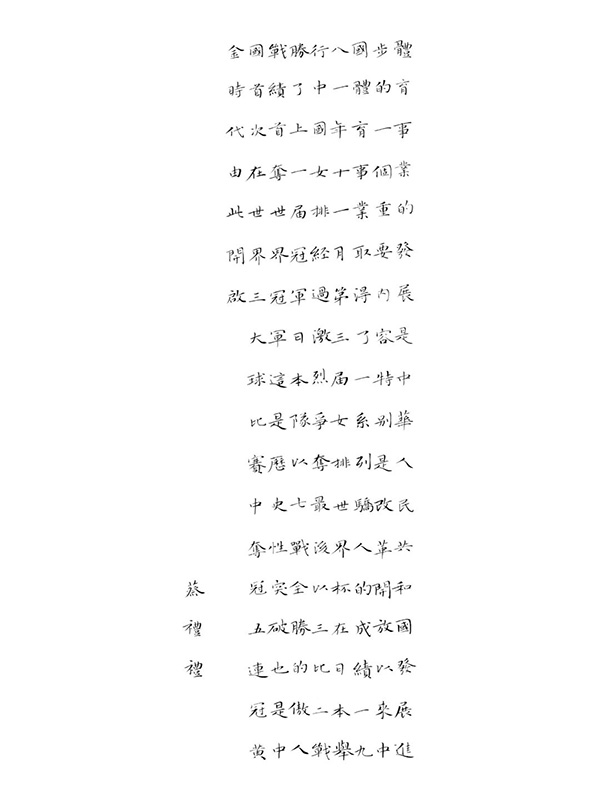 體育事業的發展是中華人民共和國發展進
步的一個重要內容特別是改革開放以來中
國體育事業取得了一系列驕人的成績一九
八一年十一月第三届女排世界杯在日本舉
行中國女排經過激烈爭奪最後以三比二戰
勝了上一届冠軍日本隊以七戰全勝的傲人
戰績首奪世界冠軍這是歷史性突破也是中
國首次在世界三大球比賽中奪冠五連冠黄
金時代由此開啟
蔡禮禮